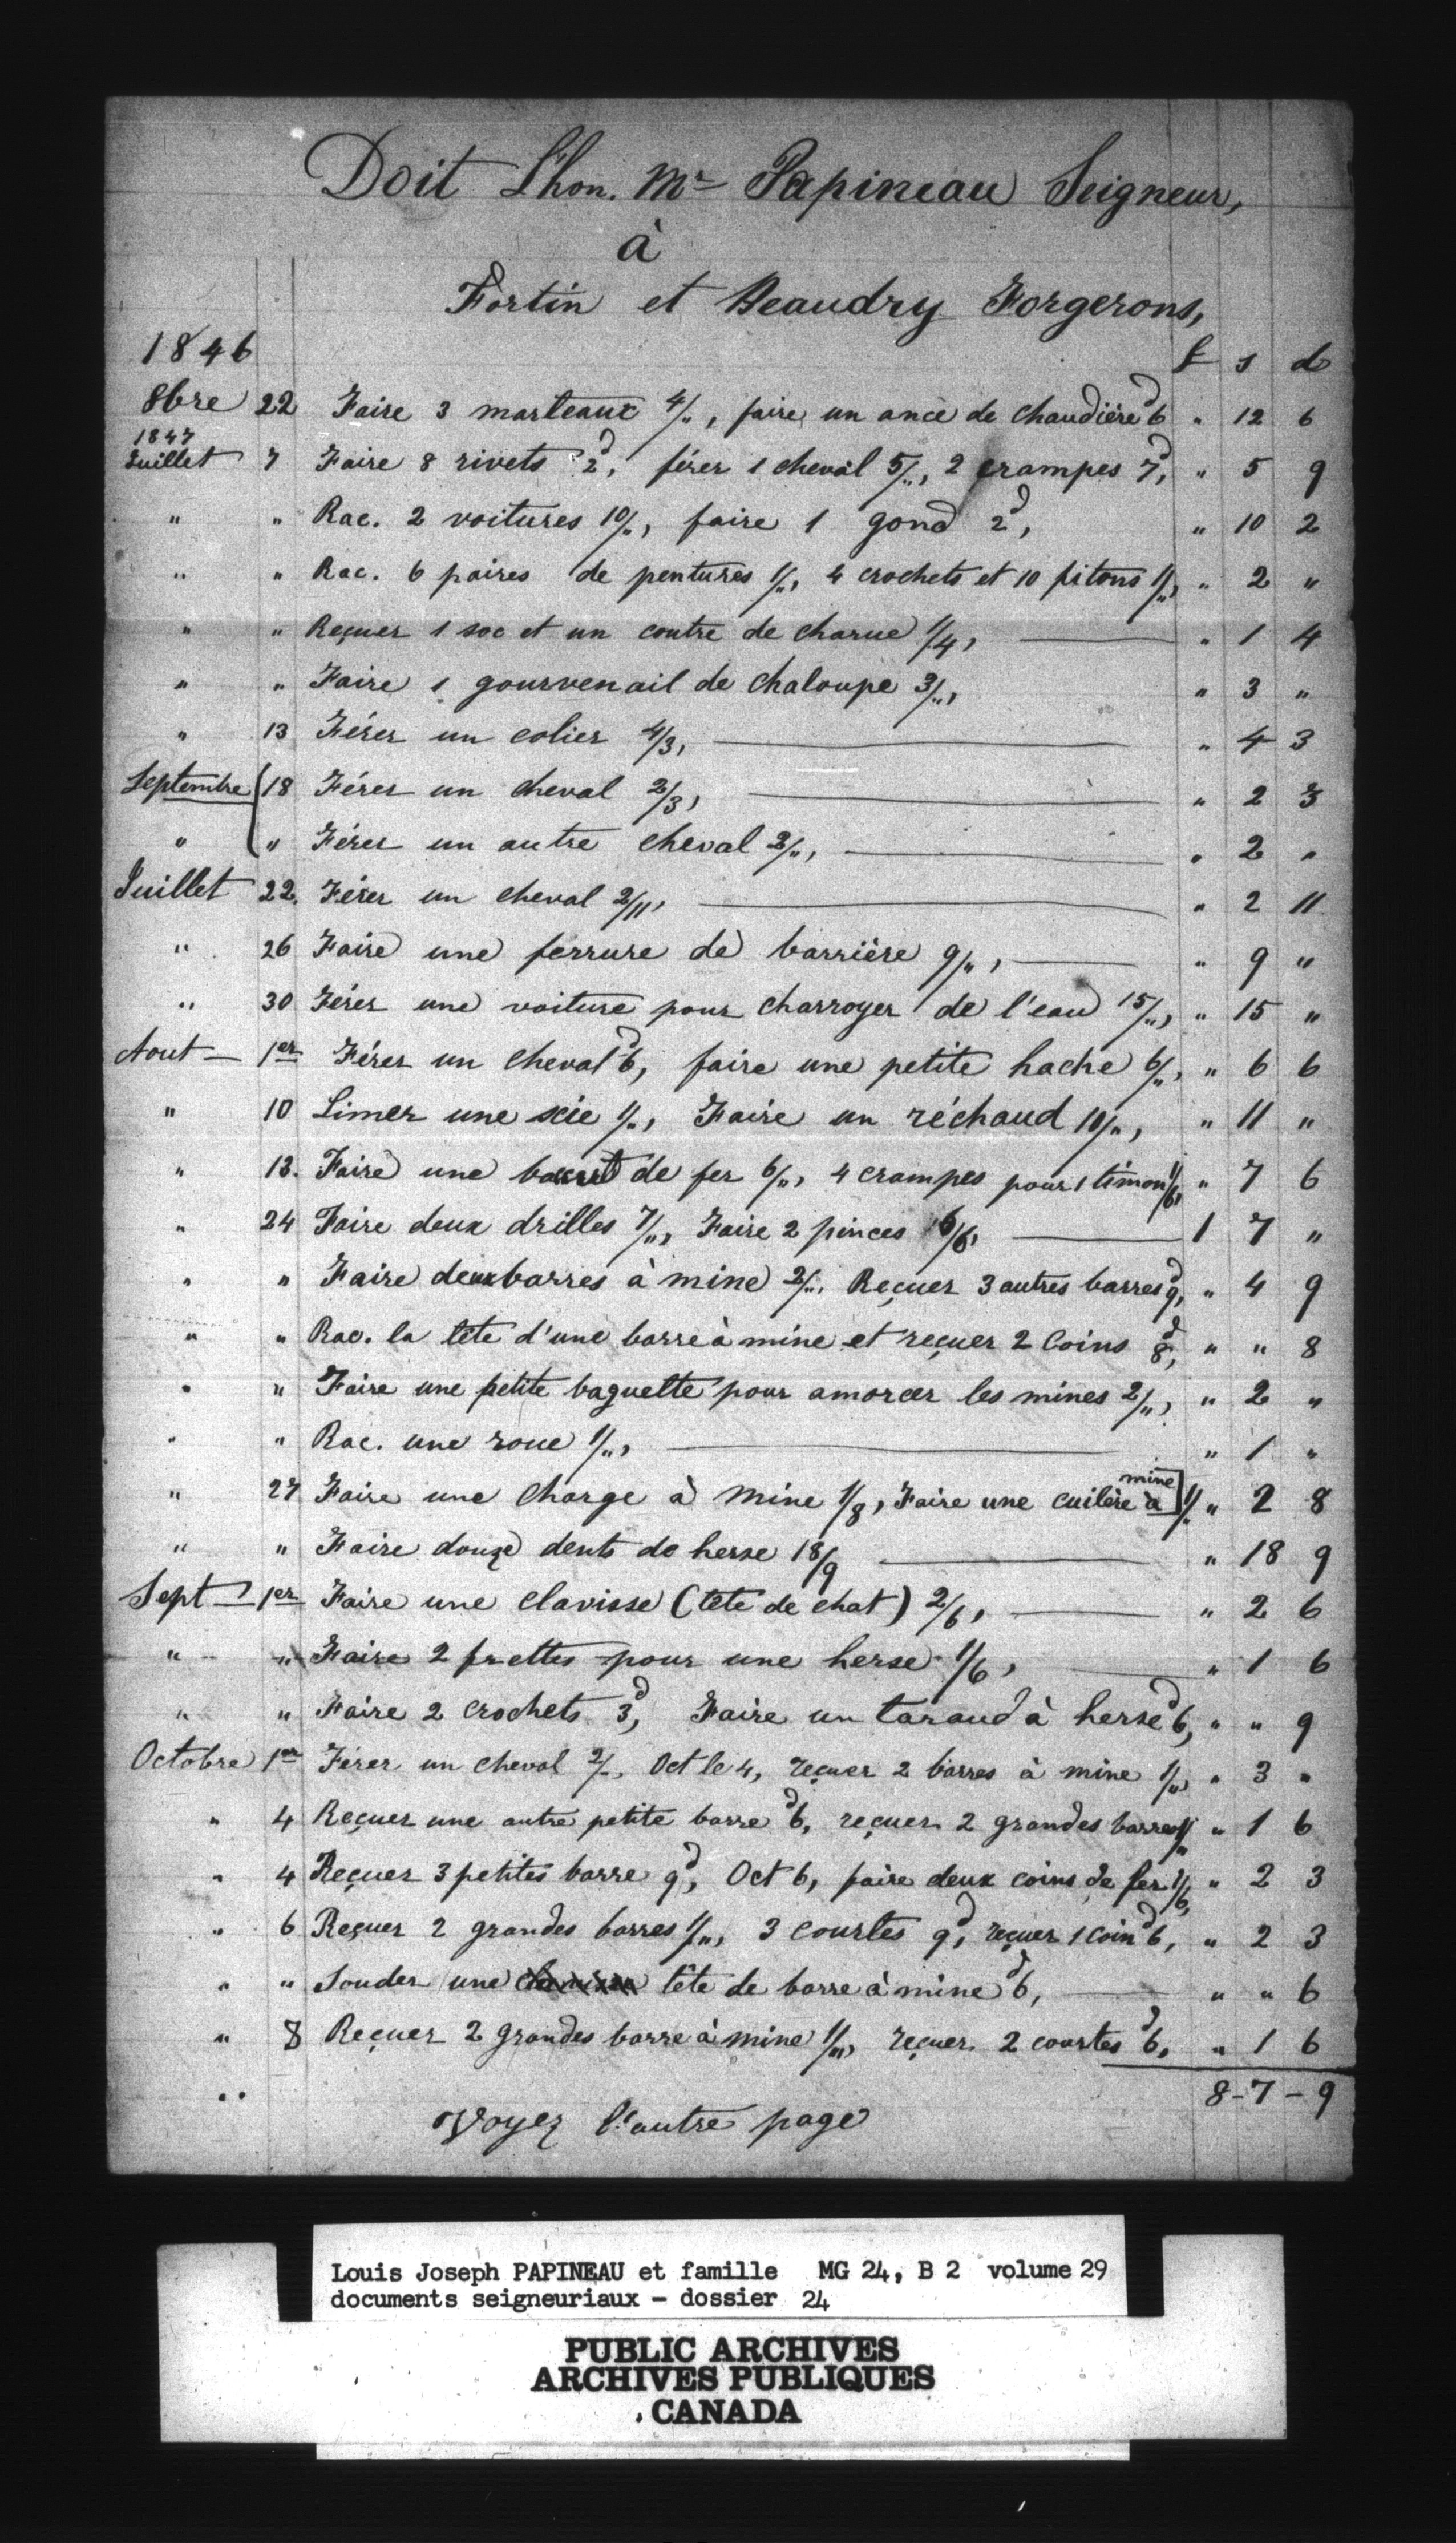 Doit L'hon. Mr Papineau Seigneur,
à
Fortin et Beaudry Forgerons,
1846 £ s d
8bre 22 Faire 3 marteaux 4/", faire un ance de chaudière 6d " 12 6
1847
Juillet 7 Faire 8 rivets 2d, férer 1 cheval 5/", 2 crampes 7d, " 5 9
" " Rac. 2 voitures 10/", faire 1 gond 2d, " 10 2
" " Rac. 6 paires de pentures 1/", 4 crochets et 10 pitons 1/", " 2 "
" " Reçuer 1 soc et un coutre de charue 1/4, " 1 4
" " Faire 1 gourvenail de chaloupe 3/", " 3 "
" 13 Férer un colier 4/3, " 4 3
Septembre 18 Férer un cheval 2/3, " 2 3
" " Férer un autre cheval 2/", " 2 "
Juillet 22. Férer un cheval 2/11, " 2 11
" 26 Faire une ferrure de barrière 9/", " 9 "
" 30 Férer une voiture pour charroyer de l'eau 15/", " 15 "
Aout 1er Férer un cheval 6d, faire une petite hache 6/", " 6 6
" 10 Limer une scie 1/", Faire un réchaud 10/", " 11 "
" 13. Faire une de fer 6/", 4 crampes pour 1 timon 1/6, " 7 6
" 24 Faire deux drilles 7/", Faire 2 pinces /6, 1 7 "
" " Faire deux barres à mine 2/". Reçuer 3 autres barres 9d, " 4 9
" " Rac. la tête d'une barre à mine et reçuer 2 coins 8d, " " 8
" " Faire une petite baguette pour amorcer les mines 2/", " 2 "
" " Rac. une roue 1/", " 1 "
" 27 Faire une charge à mine 1/8, Faire une cuilère à mine 1/" " 2 8
" " Faire douze dents de herse 18/9 " 18 9
Sept 1er Faire une clavisse (tête de chat) 2/6, " 2 6
" " Faire 2 frettes pour une herse 1/6, " 1 6
" " Faire 2 crochets 3d, Faire un taraud à herse 6d, " " 9
Octobre 1er Férer un cheval 2/". Oct le 4, reçuer 2 barres à mine 1/", " 3 "
" 4 Reçuer une autre petite barre 6d, reçuer 2 grandes barres 1/" " 1 6
" 4 Reçuer 3 petites barre 9d, Oct 6, faire deux coins de fer 1/6, " 2 3
" 6 Reçuer 2 grandes barres 1/", 3 courtes 9d, reçuer 1 coin 6d, " 2 3
" " Souder une tête de barre à mine 6d, " " 6
" 8 Reçuer 2 grandes barre à mine 1/", reçuer 2 courtes 6d, " 1 6
" 8-7-9
Voyez l'autre page
Louis Joseph PAPINEAU et famille MG 24, B 2 volume 29
documents seigneuriaux - dossier 24
PUBLIC ARCHIVES
ARCHIVES PUBLIQUES
CANADA